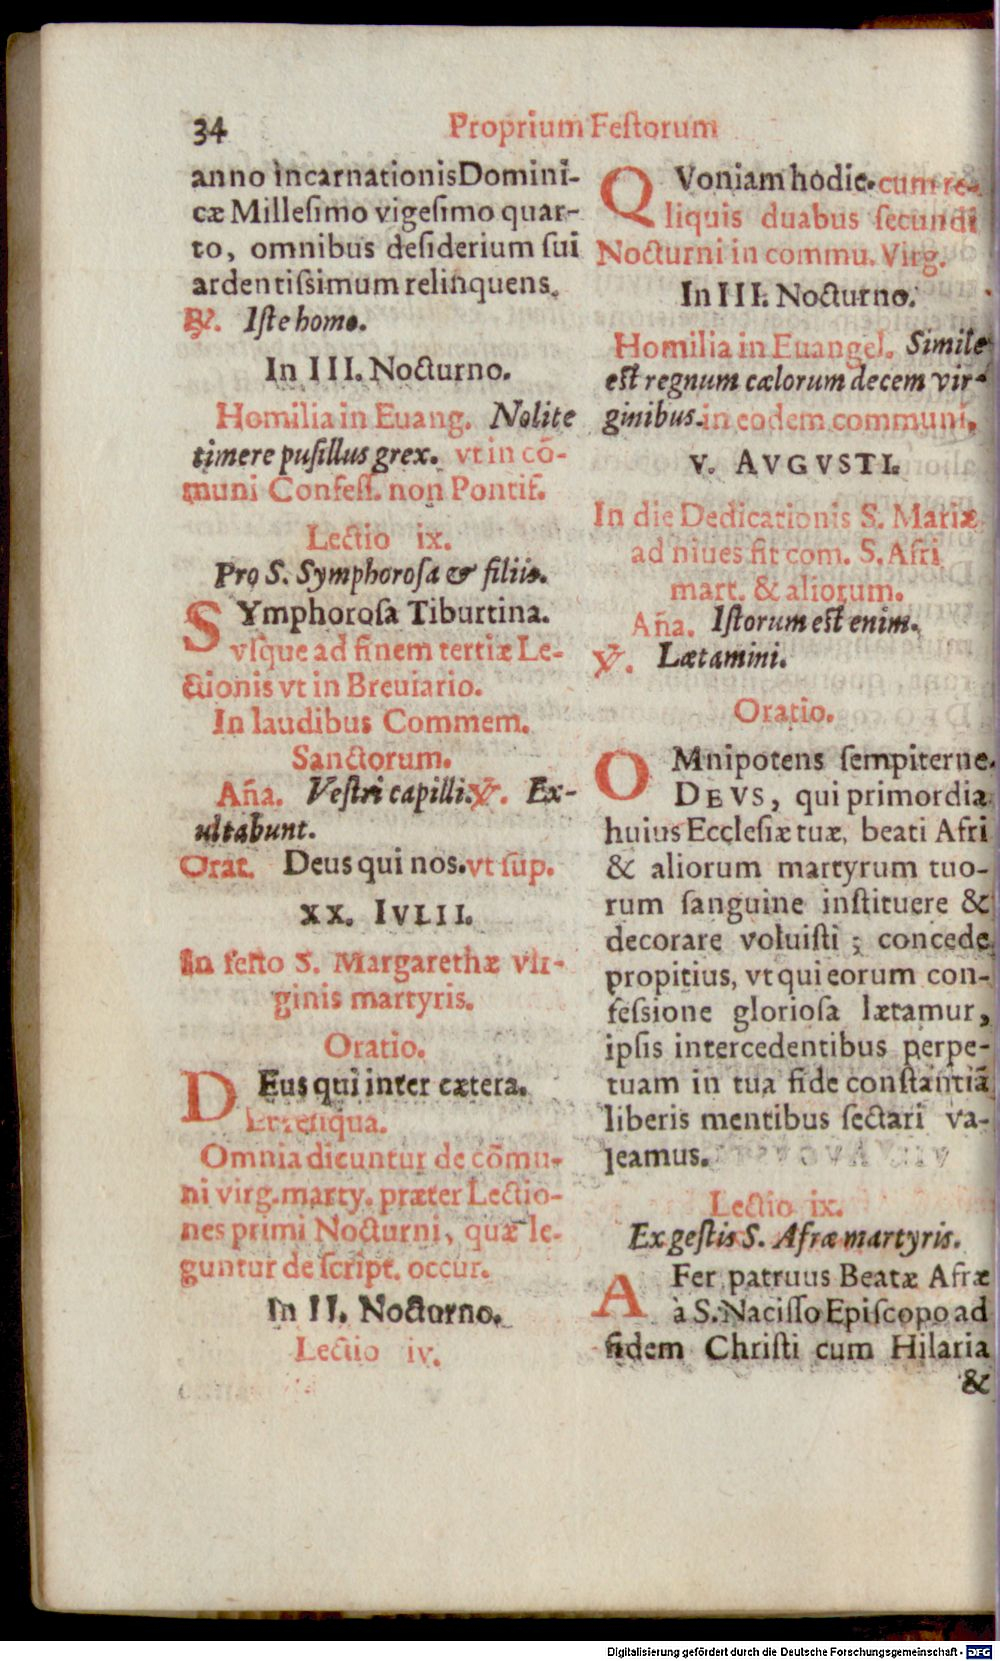 34 Proprium Feſtorum
anno incarnationis Domini-
cæ Milleſimo vigeſimo quar-
to, omnibus deſiderium ſui
ardentiſsimum relinquens.
℟. Iſte homo.
In III. Nocturno.
Homilia in Euang. Nolite
timere puſillus grex. vt in cõ-
muni Confeſſ. non Pontif.
Lectio ix.
Pro S. Symphoroſa & filiis.
SYmphoroſa Tiburtina.
vſque ad finem tertiæ Le-
ctionis vt in Breuiario.
In laudibus Commem.
Sanctorum.
Aña. Veſtri capilli. ℣. Ex-
ultabunt.
Orat. Deus qui nos. vt ſup.
XX. IVLII.
In feſto S. Margarethæ vir-
ginis martyris.
Oratio.
DEus qui inter cætera.
& reliqua.
Omnia dicuntur de cõmu-
ni virg. marty. præter Lectio-
nes primi Nocturni, quæ le-
guntur de ſcript. occur.
In II. Nocturno.
Lectio iv.
QVoniam hodie. cum re-
liquis duabus ſecundi
Nocturni in commu. Virg.
In III. Nocturno.
Homilia in Euangel. Simile
eſt regnum cælorum decem vir-
ginibus. in eodem communi.
V. AVGVSTI.
In die Dedicationis S. Mariæ
ad niues fit com. S. Afri
mart. & aliorum.
Aña. Iſtorum eſt enim.
℣. Lætamini.
Oratio.
OMnipotens ſempiterne
DEVS, qui primordia
huius Eccleſiæ tuæ, beati Afri
& aliorum martyrum tuo-
rum ſanguine inſtituere &
decorare voluiſti; concede
propitius, vt qui eorum con-
feſsione glorioſa lætamur,
ipſis intercedentibus perpe-
tuam in tua fide conſtantiã
liberis mentibus ſectari va-
leamus.
Lectio ix.
Ex geſtis S. Afræ martyris.
AFer patruus Beatæ Afræ
à S. Naciſſo Epiſcopo ad
fidem Chriſti cum Hilaria
&
Digitalisierung gefördert durch die Deutsche Forschungsgemeinschaft - DFG